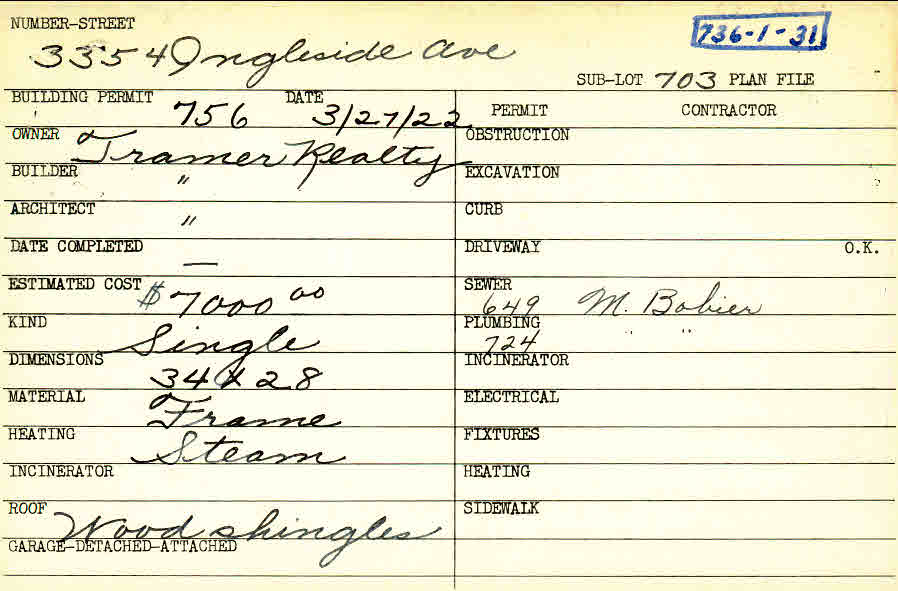 NUMBER-STREET
3354 Ingleside Ave
736-1-31
SUB-LOT 703 PLAN FILE
BUILDING PERMIT 756 DATE 3/27/22
OWNER Tramer Realty
BUILDER "
ARCHITECT "
DATE COMPLETED —
ESTIMATED COST $7000 00
KIND Single
DIMENSIONS 34 X 28
MATERIAL Frame
HEATING Steam
INCINERATOR
ROOF Wood shingles
GARAGE-DETACHED-ATTACHED
PERMIT CONTRACTOR
OBSTRUCTION
EXCAVATION
CURB
DRIVEWAY O.K.
SEWER
649 M. Bobier
PLUMBING " "
724
INCINERATOR
ELECTRICAL
FIXTURES
HEATING
SIDEWALK